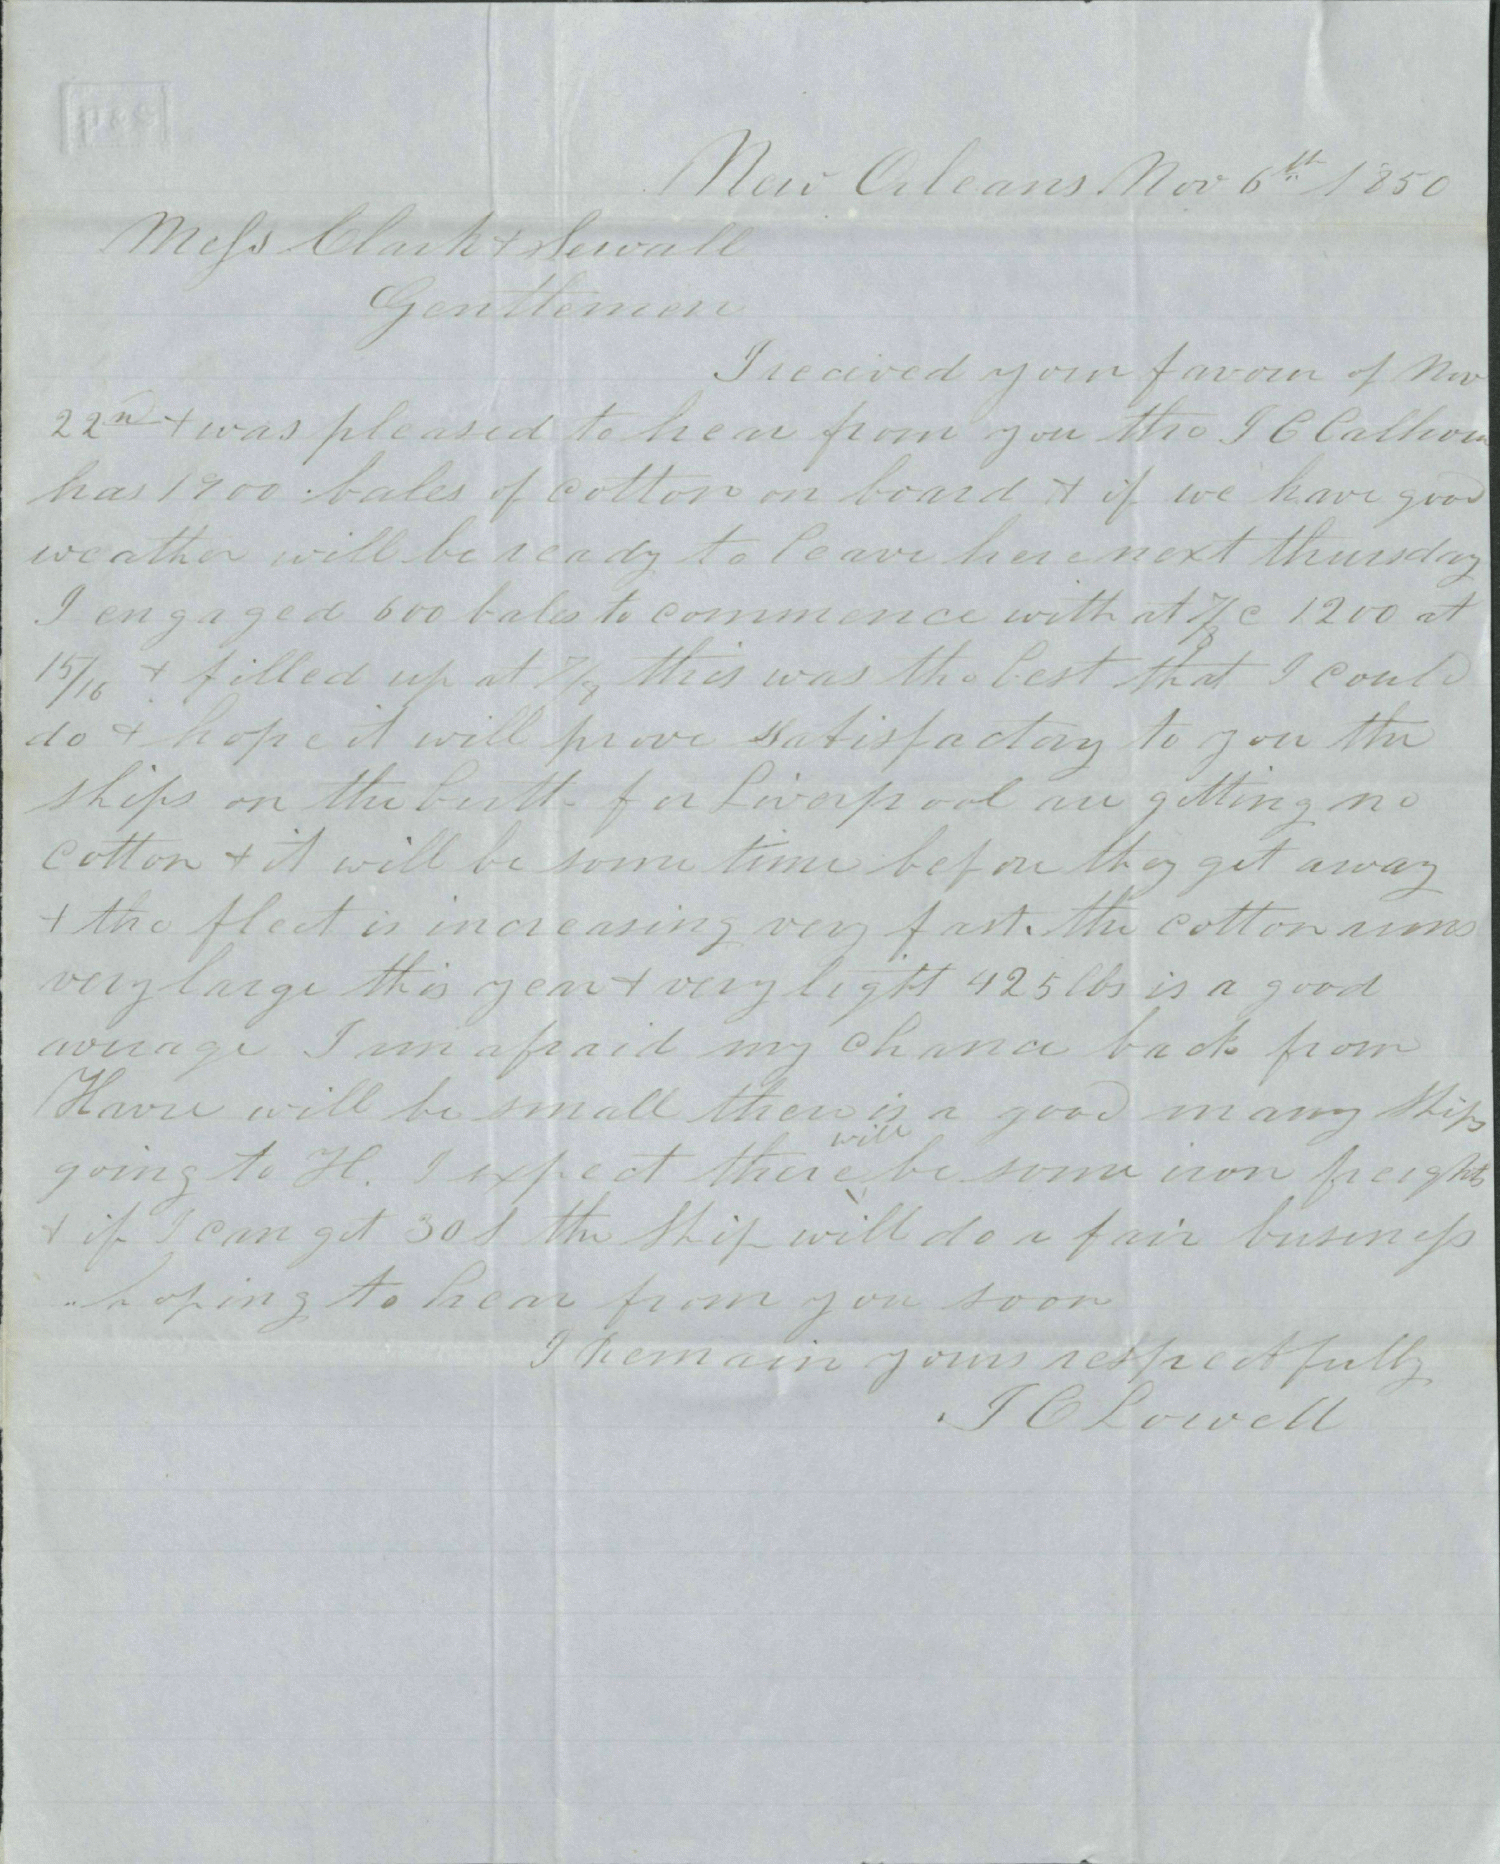 New Orleans Nov 6th 1850
Mess Clark & Sewall
Gentlemen
I recived your favour of Nov
22nd & was pleased to hear from you the J C Calhoun
has 1900 bales of cotton on board & if we have good
weather will be ready to leave here next thursday
I engaged 600 bales to commence with at 7/8 c 1200 at
15/16 & filled up at 7/8 this was the best that I could
do & hope it will prove satisfactory to you the
ships on the berth for Liverpool are getting no
cotton & it will be some time before they get away
& the fleet is increasing very fast. the cotton runs
very large this year & very light 425 lbs is a good
average I am afraid my chance back from
Havre will be small there is a good many ships
going to H. I expect there will be some iron freights
& if I can get 30 s the ship will do a fair business
hoping to hear from you soon
I Remain yours respectfully
J C Lowell